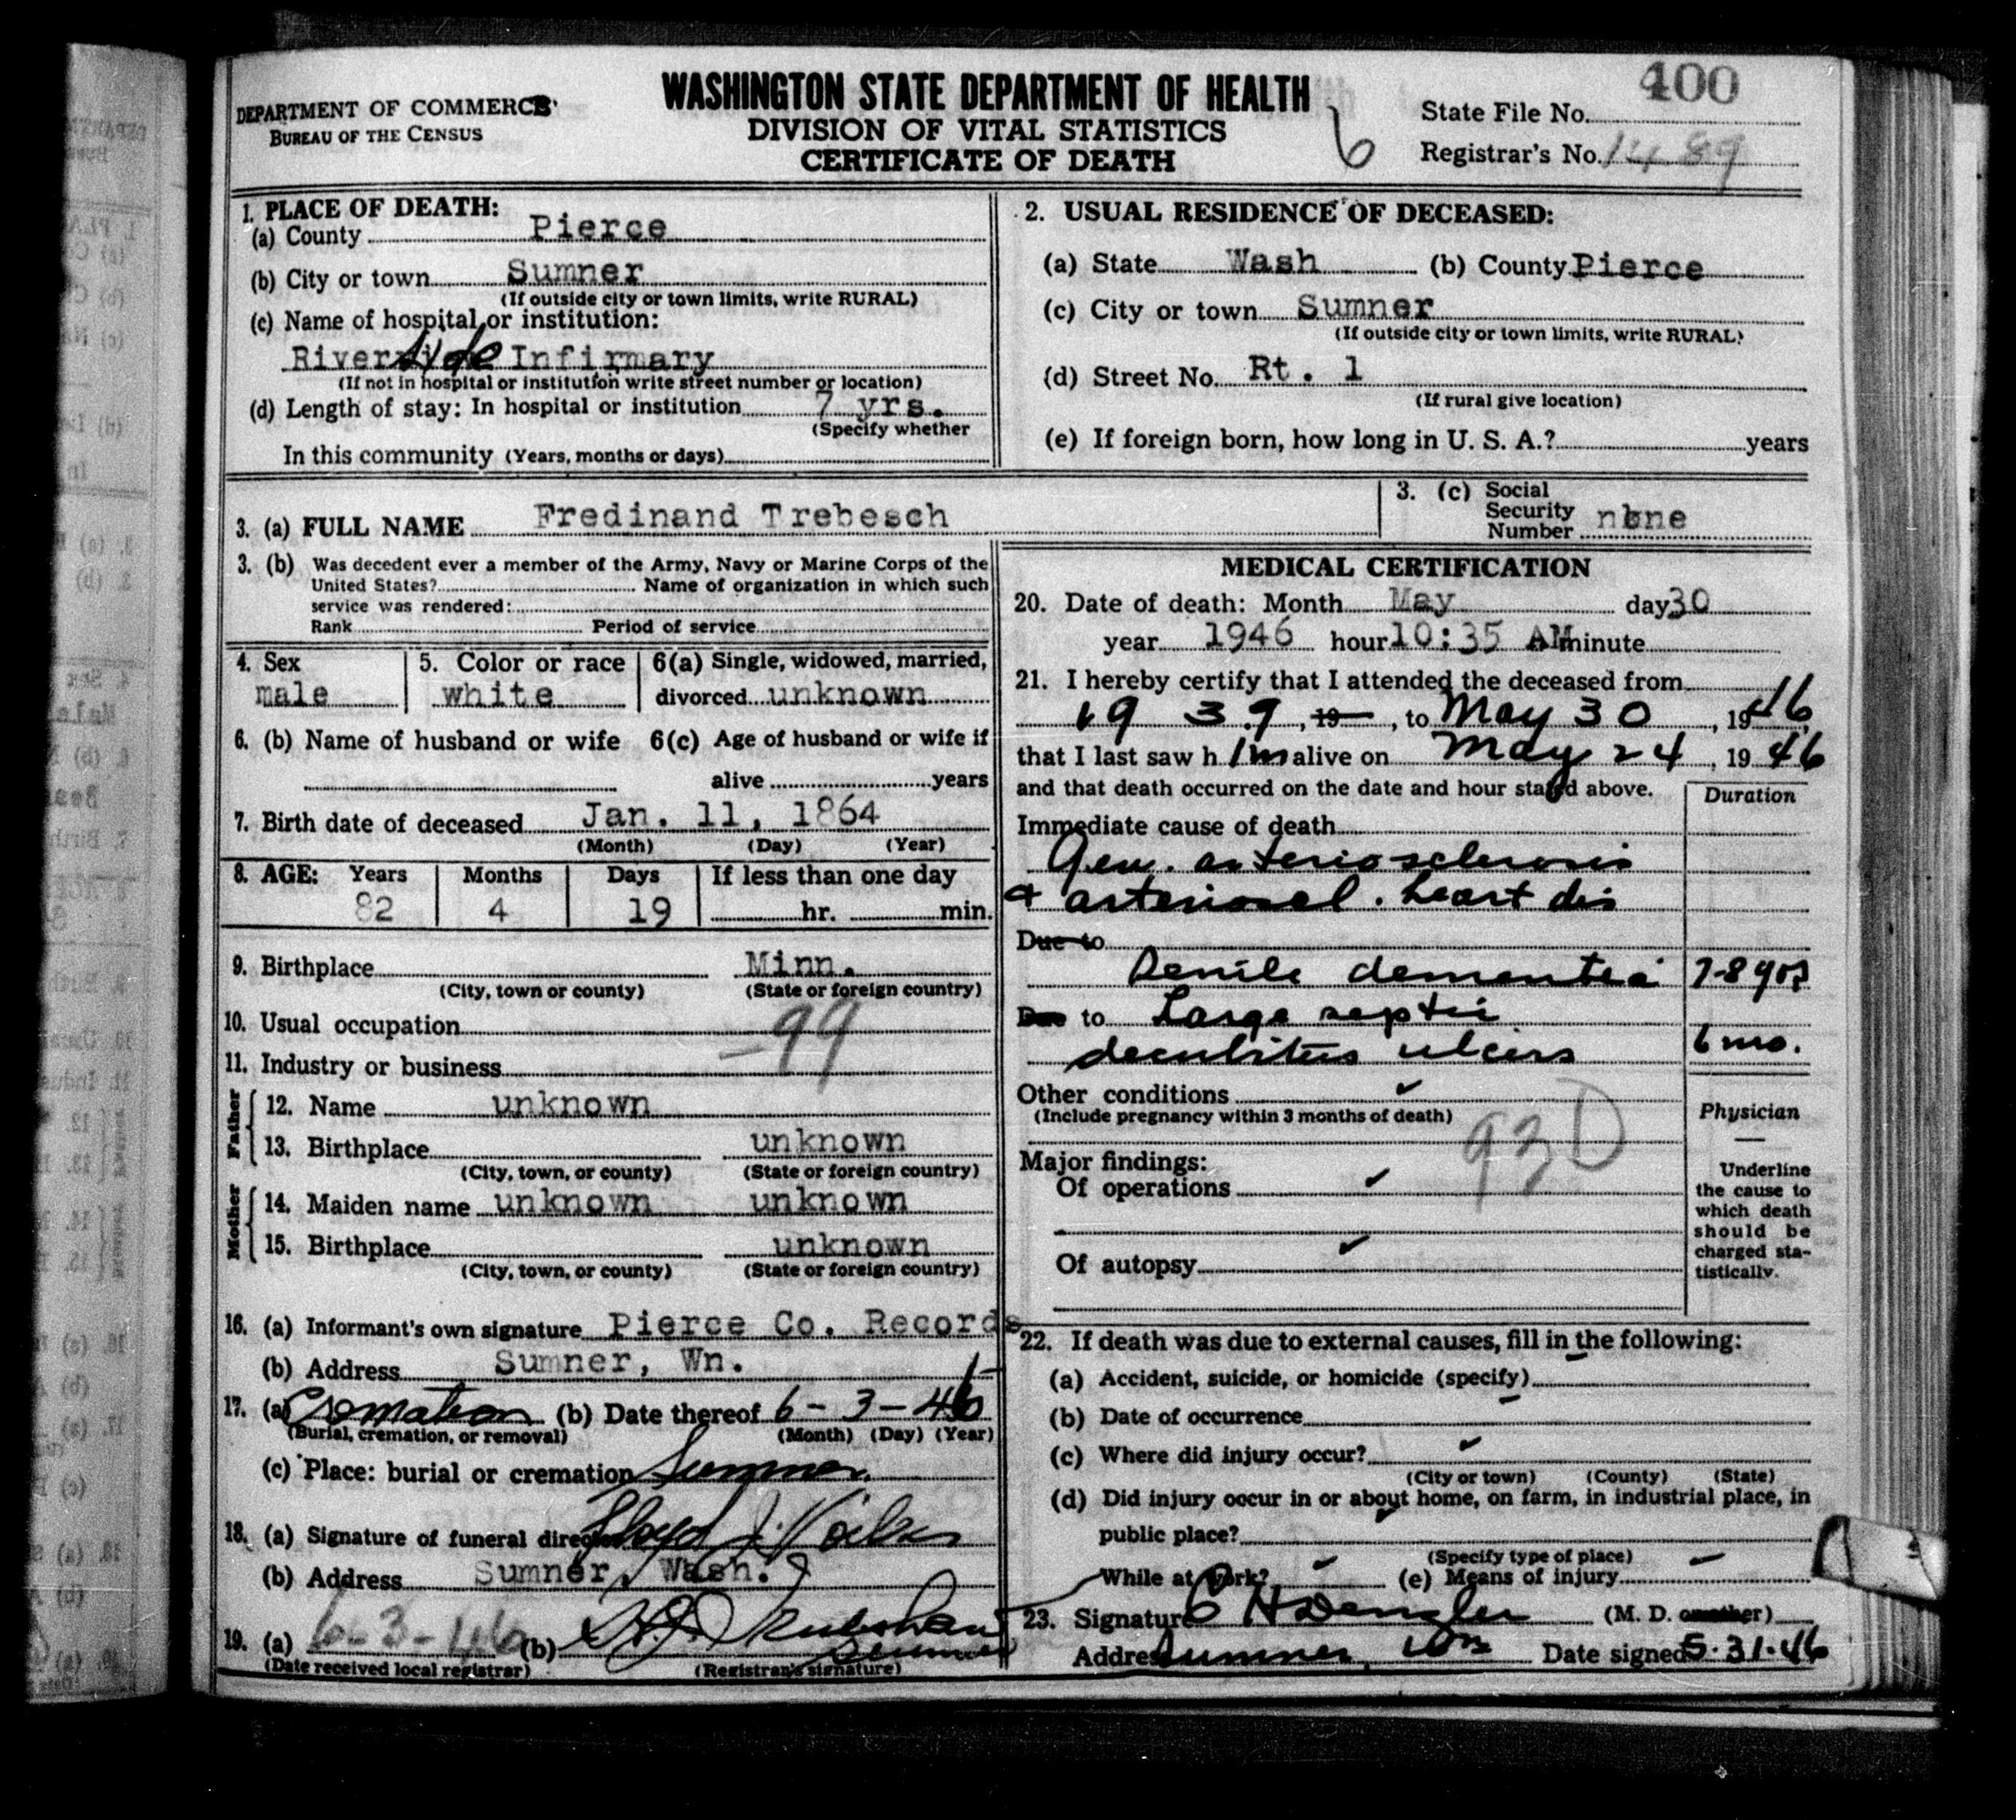 DEPARTMENT OF COMMERCE
BUREAU OF THE CENSUS
WASHINGTON STATE DEPARTMENT OF HEALTH
DIVISION OF VITAL STATISTICS
CERTIFICATE OF DEATH
6
400
State File No.
Registrar's No. 1489
1. PLACE OF DEATH:
(a) County Pierce
(b) City or town Sumner
(If outside city or town limits, write RURAL)
(c) Name of hospital or institution:
Riverside Infirmary
(If not in hospital or institution write street number or location)
(d) Length of stay: In hospital or institution 7 yrs.
(Specify whether
In this community (Years, months or days)
2. USUAL RESIDENCE OF DECEASED:
(a) State Wash (b) County Pierce
(c) City or town Sumner
(If outside city or town limits, write RURAL)
(d) Street No. Rt. 1
(If rural give location)
(e) If foreign born, how long in U. S. A.? years
3. (a) FULL NAME Fredinand Trebesch
3. (c) Social
Security
Number none
3. (b) Was decedent ever a member of the Army, Navy or Marine Corps of the
United States? Name of organization in which such
service was rendered:
Rank Period of service
4. Sex
male
5. Color or race
white
6(a) Single, widowed, married,
divorced unknown
6. (b) Name of husband or wife
6(c) Age of husband or wife if
alive years
7. Birth date of deceased Jan. 11, 1864
(Month) (Day) (Year)
8. AGE: Years Months Days If less than one day
82 4 19 hr. min.
9. Birthplace Minn.
(City, town or county) (State or foreign country)
10. Usual occupation
-99
11. Industry or business
Father
12. Name unknown
13. Birthplace unknown
(City, town, or county) (State or foreign country)
Mother
14. Maiden name unknown unknown
15. Birthplace unknown
(City, town, or county) (State or foreign country)
16. (a) Informant's own signature Pierce Co. Records
(b) Address Sumner, Wn.
17. (a) Cremation (b) Date thereof 6-3-46
(Burial, cremation, or removal) (Month) (Day) (Year)
(c) Place: burial or cremation Sumner
18. (a) Signature of funeral director Lloyd J.
(b) Address Sumner, Wash.
19. (a) 6-3-46 (b)
Sumner
(Date received local registrar) (Registrar's signature)
MEDICAL CERTIFICATION
20. Date of death: Month May day 30
year 1946 hour 10:35 AM minute
21. I hereby certify that I attended the deceased from
1939, 19 , to May 30, 1946,
that I last saw h im alive on May 24, 1946
and that death occurred on the date and hour stated above.
Duration
Immediate cause of death
Gen. arteriosclerosis
& arterioscl. heart dis
Due to
Senile dementia 7-8 yrs
Due to Large septic
decubitus ulcers 6 mo.
Other conditions
(Include pregnancy within 3 months of death)
93D
Major findings:
Of operations
Of autopsy
Physician
Underline
the cause to
which death
should be
charged sta-
tistically.
22. If death was due to external causes, fill in the following:
(a) Accident, suicide, or homicide (specify)
(b) Date of occurrence
(c) Where did injury occur?
(City or town) (County) (State)
(d) Did injury occur in or about home, on farm, in industrial place, in
public place?
(Specify type of place)
While at work? (e) Means of injury
23. Signature H Dengler (M. D. or other)
Address Sumner, Wn Date signed 5-31-46